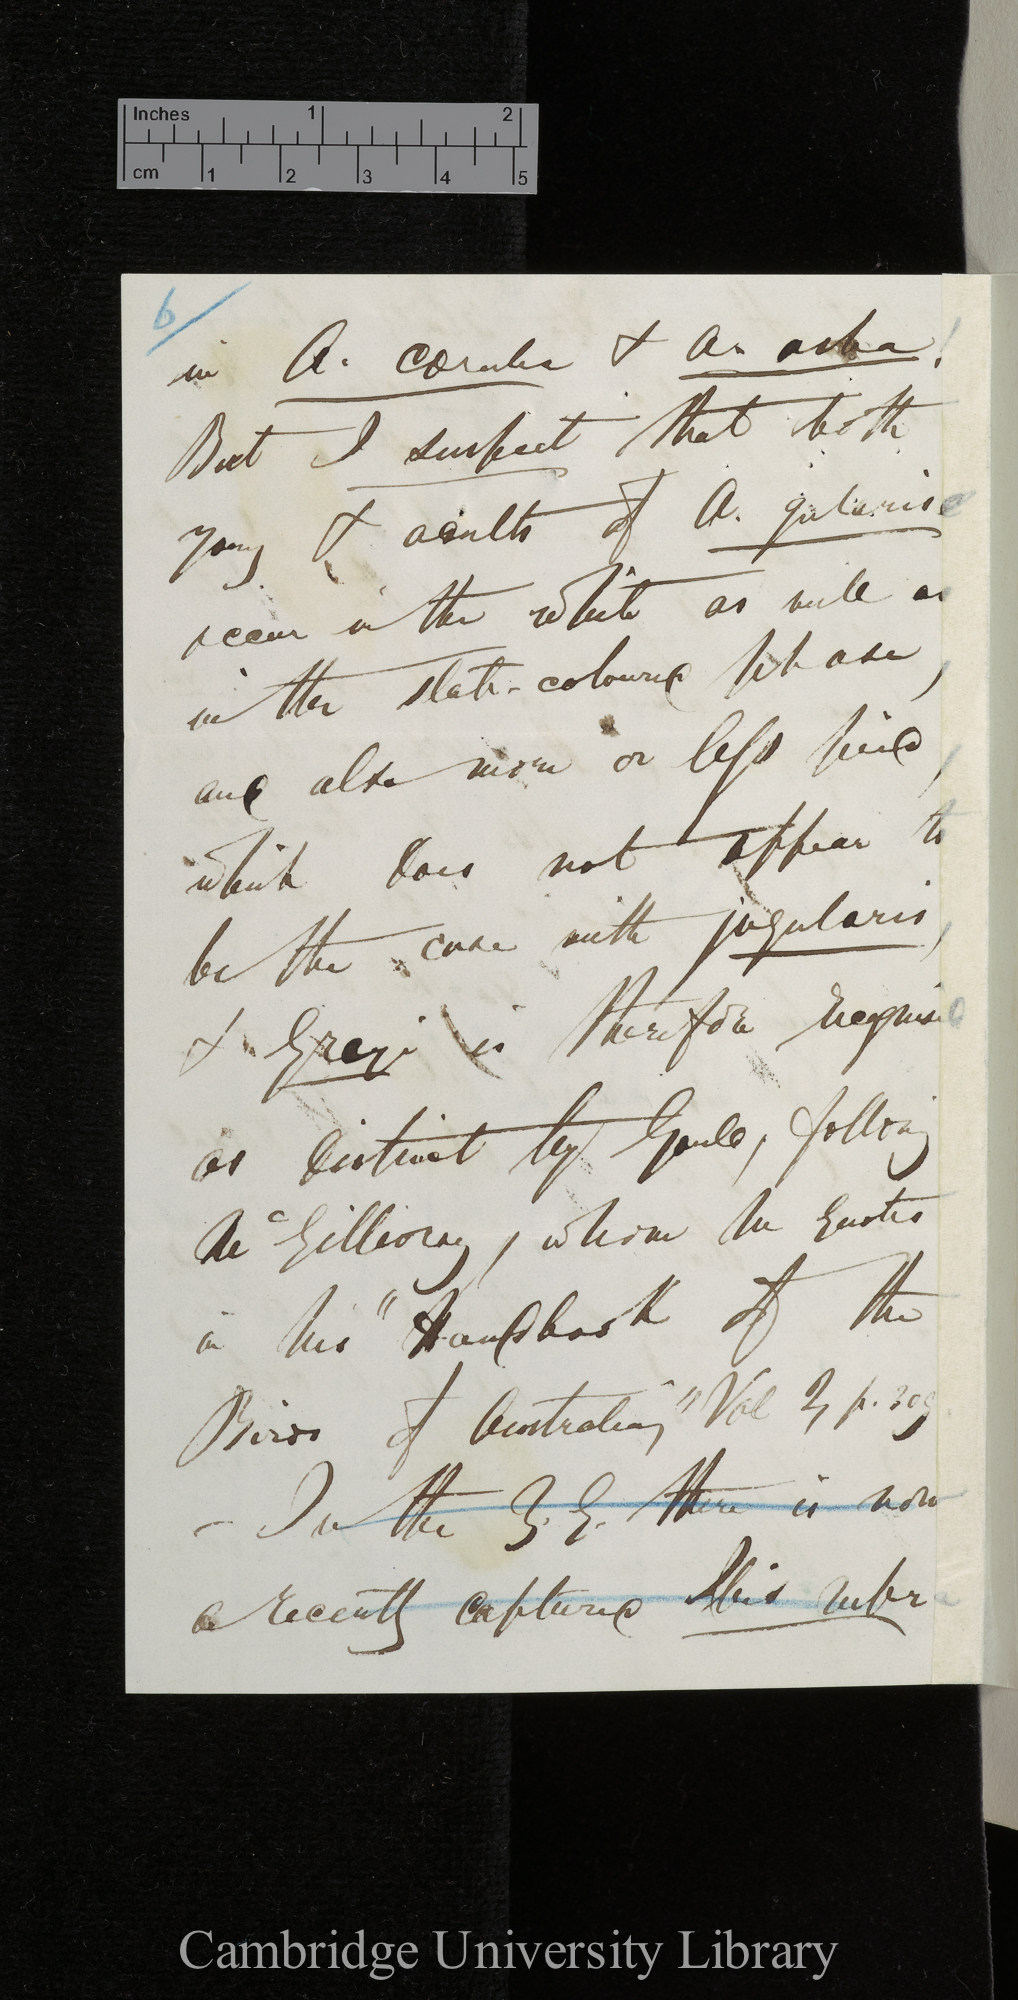 Inches 1 2
cm 1 2 3 4 5
6
in A. cœrulea & A. asha!
But I suspect that both
young & adults of A. gularis
occur in the white as well as
in the slate-coloured phase,
and also more or less pied,
which does not appear to
be the case with jugularis,
& Greyi is therefore recognised
as distinct by Gould, following
McGillivray, whom he quotes
in his "Handbook of the
Birds of Australia," Vol 2, p. 309
– In the Z. G. there is now
a recently captured Ibis rubra
Cambridge University Library